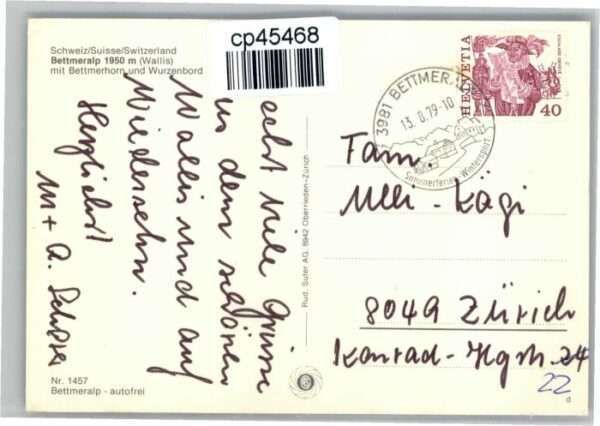 cp45468
Schweiz/Suisse/Switzerland
Bettmeralp 1950 m (Wallis)
mit Bettmerhorn und Wurzenbord
echt viele Grüsse
us dem schönen
Wallis und auf
Wiedersehn.
Herzlichst
M + A.
Nr. 1457
Bettmeralp - autofrei
Rud. Suter AG. 8942 Oberrieden-Zürich
3981 BETTMER
13. 8. 79-10
Sommerferien-Wintersport
HELVETIA
40
Fam.
Ulli-Kägi
8049 Zürich
Konrad-Ilgstr. 24
22
d